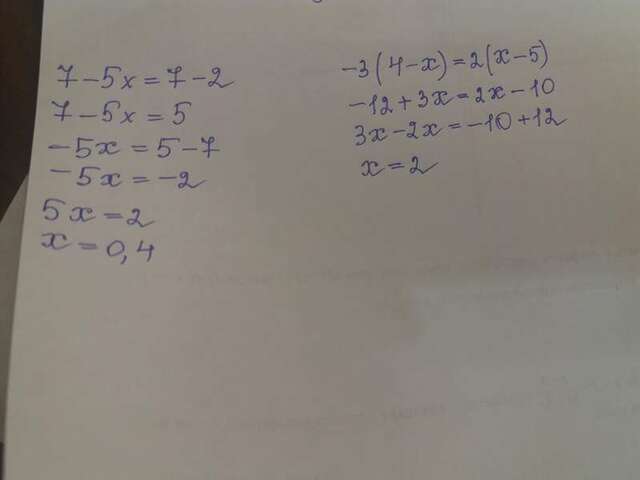 7 - 5x = 7 - 2
7 - 5x = 5
-5x = 5 - 7
-5x = -2
5x = 2
x = 0,4
-3(4-x) = 2(x-5)
-12 + 3x = 2x - 10
3x - 2x = -10 + 12
x = 2